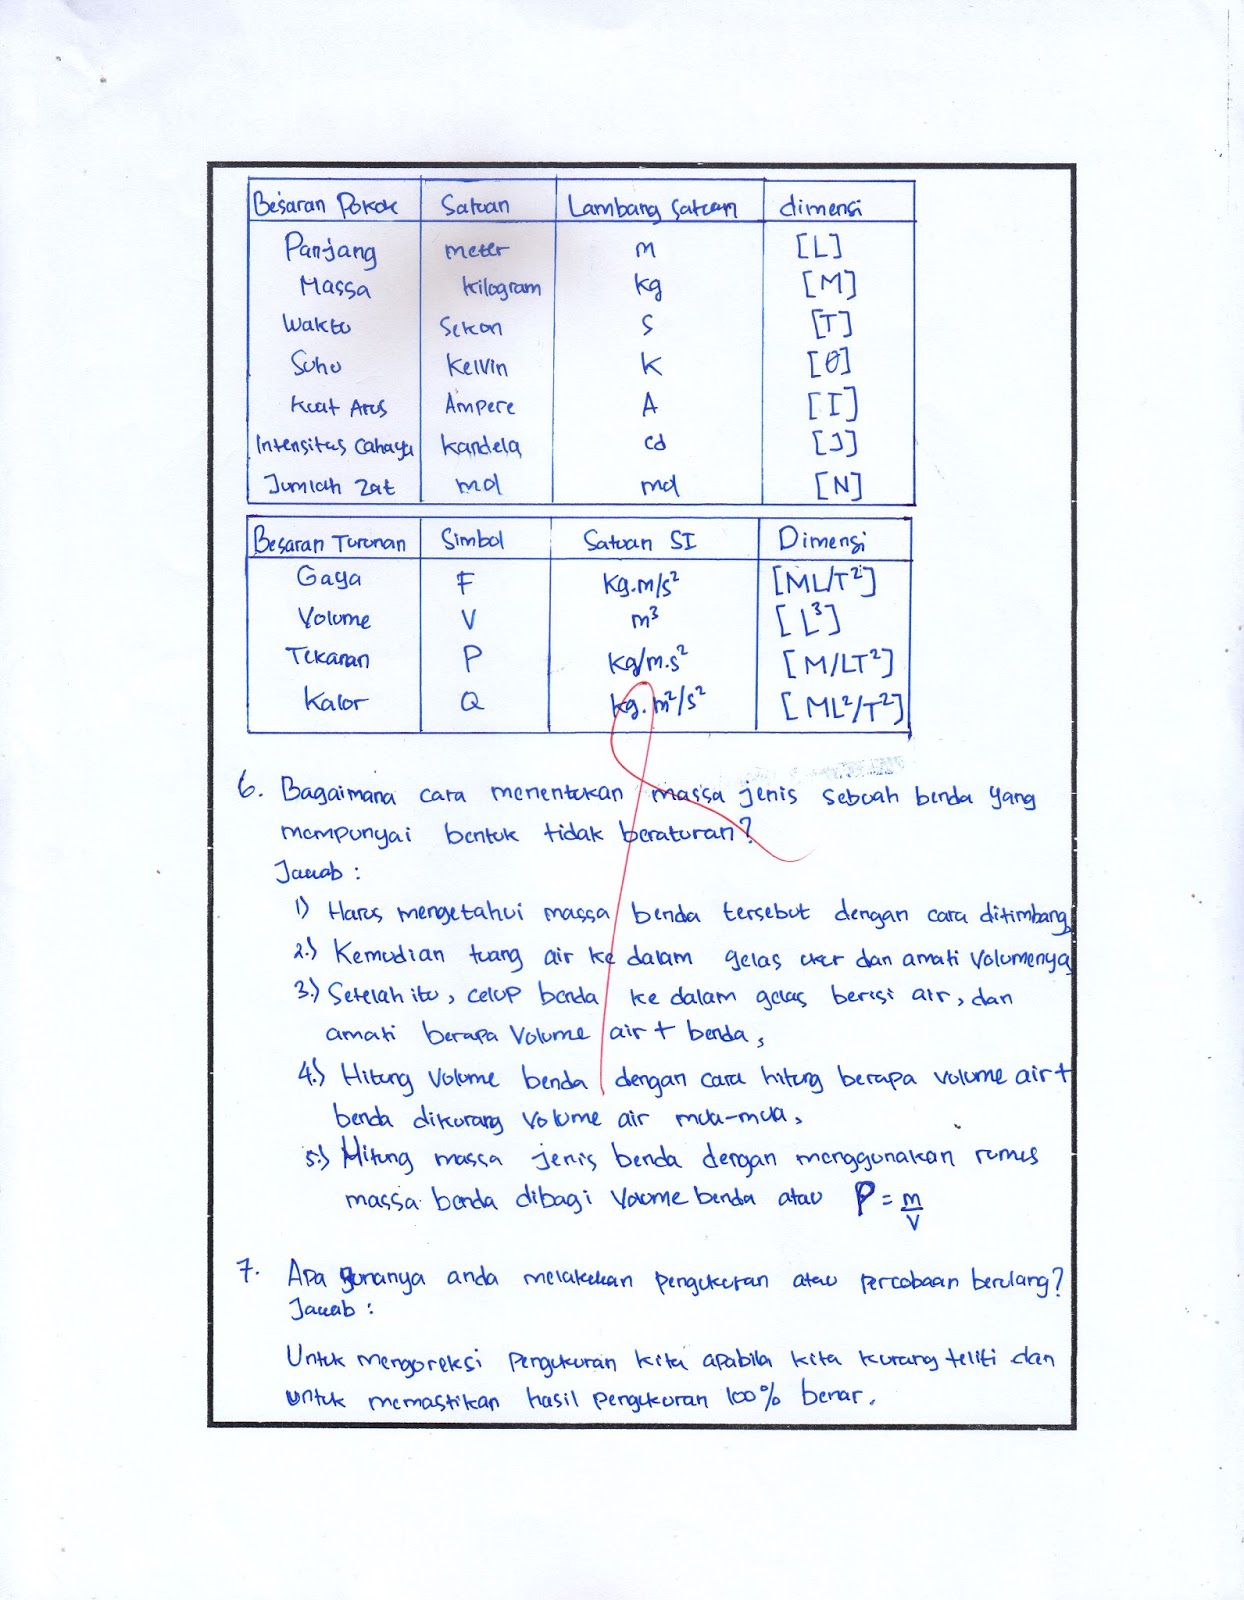 Besaran Pokok Satuan Lambang Satuan dimensi
Panjang meter m [L]
Massa kilogram kg [M]
Waktu Sekon s [T]
Suhu Kelvin K [θ]
Kuat Arus Ampere A [I]
Intensitas Cahaya kandela cd [J]
Jumlah Zat mol mol [N]
Besaran Turunan Simbol Satuan SI Dimensi
Gaya F Kg.m/s² [ML/T²]
Volume V m³ [L³]
Tekanan P kg/m.s² [M/LT²]
Kalor Q kg.m²/s² [ML²/T²]
6. Bagaimana cara menentukan massa jenis sebuah benda yang
mempunyai bentuk tidak beraturan?
Jawab :
1) Harus mengetahui massa benda tersebut dengan cara ditimbang,
2.) Kemudian tuang air ke dalam gelas ukur dan amati Volumenya
3.) Setelah itu, celup benda ke dalam gelas berisi air, dan
amati berapa Volume air + benda,
4.) Hitung Volume benda dengan cara hitung berapa volume air +
benda dikurang volume air mula-mula,
5.) Hitung massa jenis benda dengan menggunakan rumus
massa benda dibagi Volume benda atau P = m/V
7. Apa gunanya anda melakukan pengukuran atau percobaan berulang?
Jawab :
Untuk mengoreksi pengukuran kita apabila kita kurang teliti dan
untuk memastikan hasil pengukuran 100% benar.